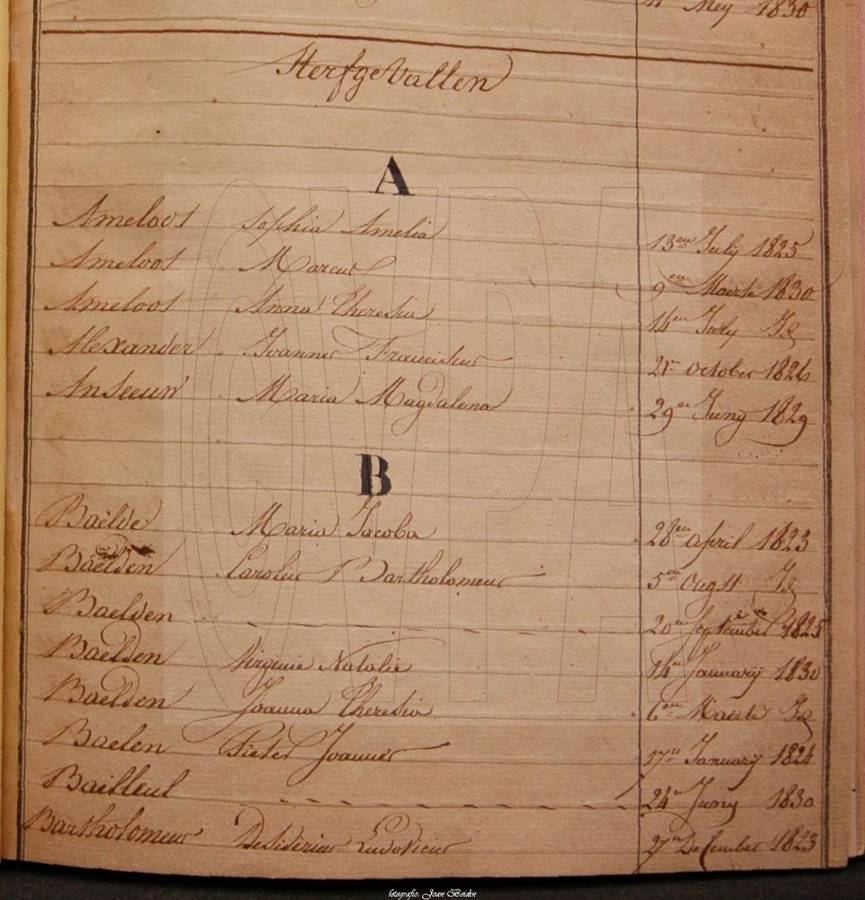 Mey 1830
Sterfgevallen
A
Ameloot Sophia Amelia 13en July 1825
Ameloot Marcus 9en Maerte 1830
Ameloot Anna Theresia 14en July Id
Alexander Joannes Franciscus 21en october 1826
Anseeuw Maria Magdalena 29en Juny 1829
B
Baelde Maria Jacoba 28en april 1823
Baelden Carolus Bartholomeus 5en Ougst Id
Baelden 20en September 1825
Baelden Virginie Natalie 14en January 1830
Baelden Joanna Theresia 6en Maerte Id
Baelen Pieter Joannes 17en January 1824
Bailleul 24en Juny 1830
Bartholomeus Desiderius Ludovicus 27en December 1823
OVPA
fotografie: Joan Boidin